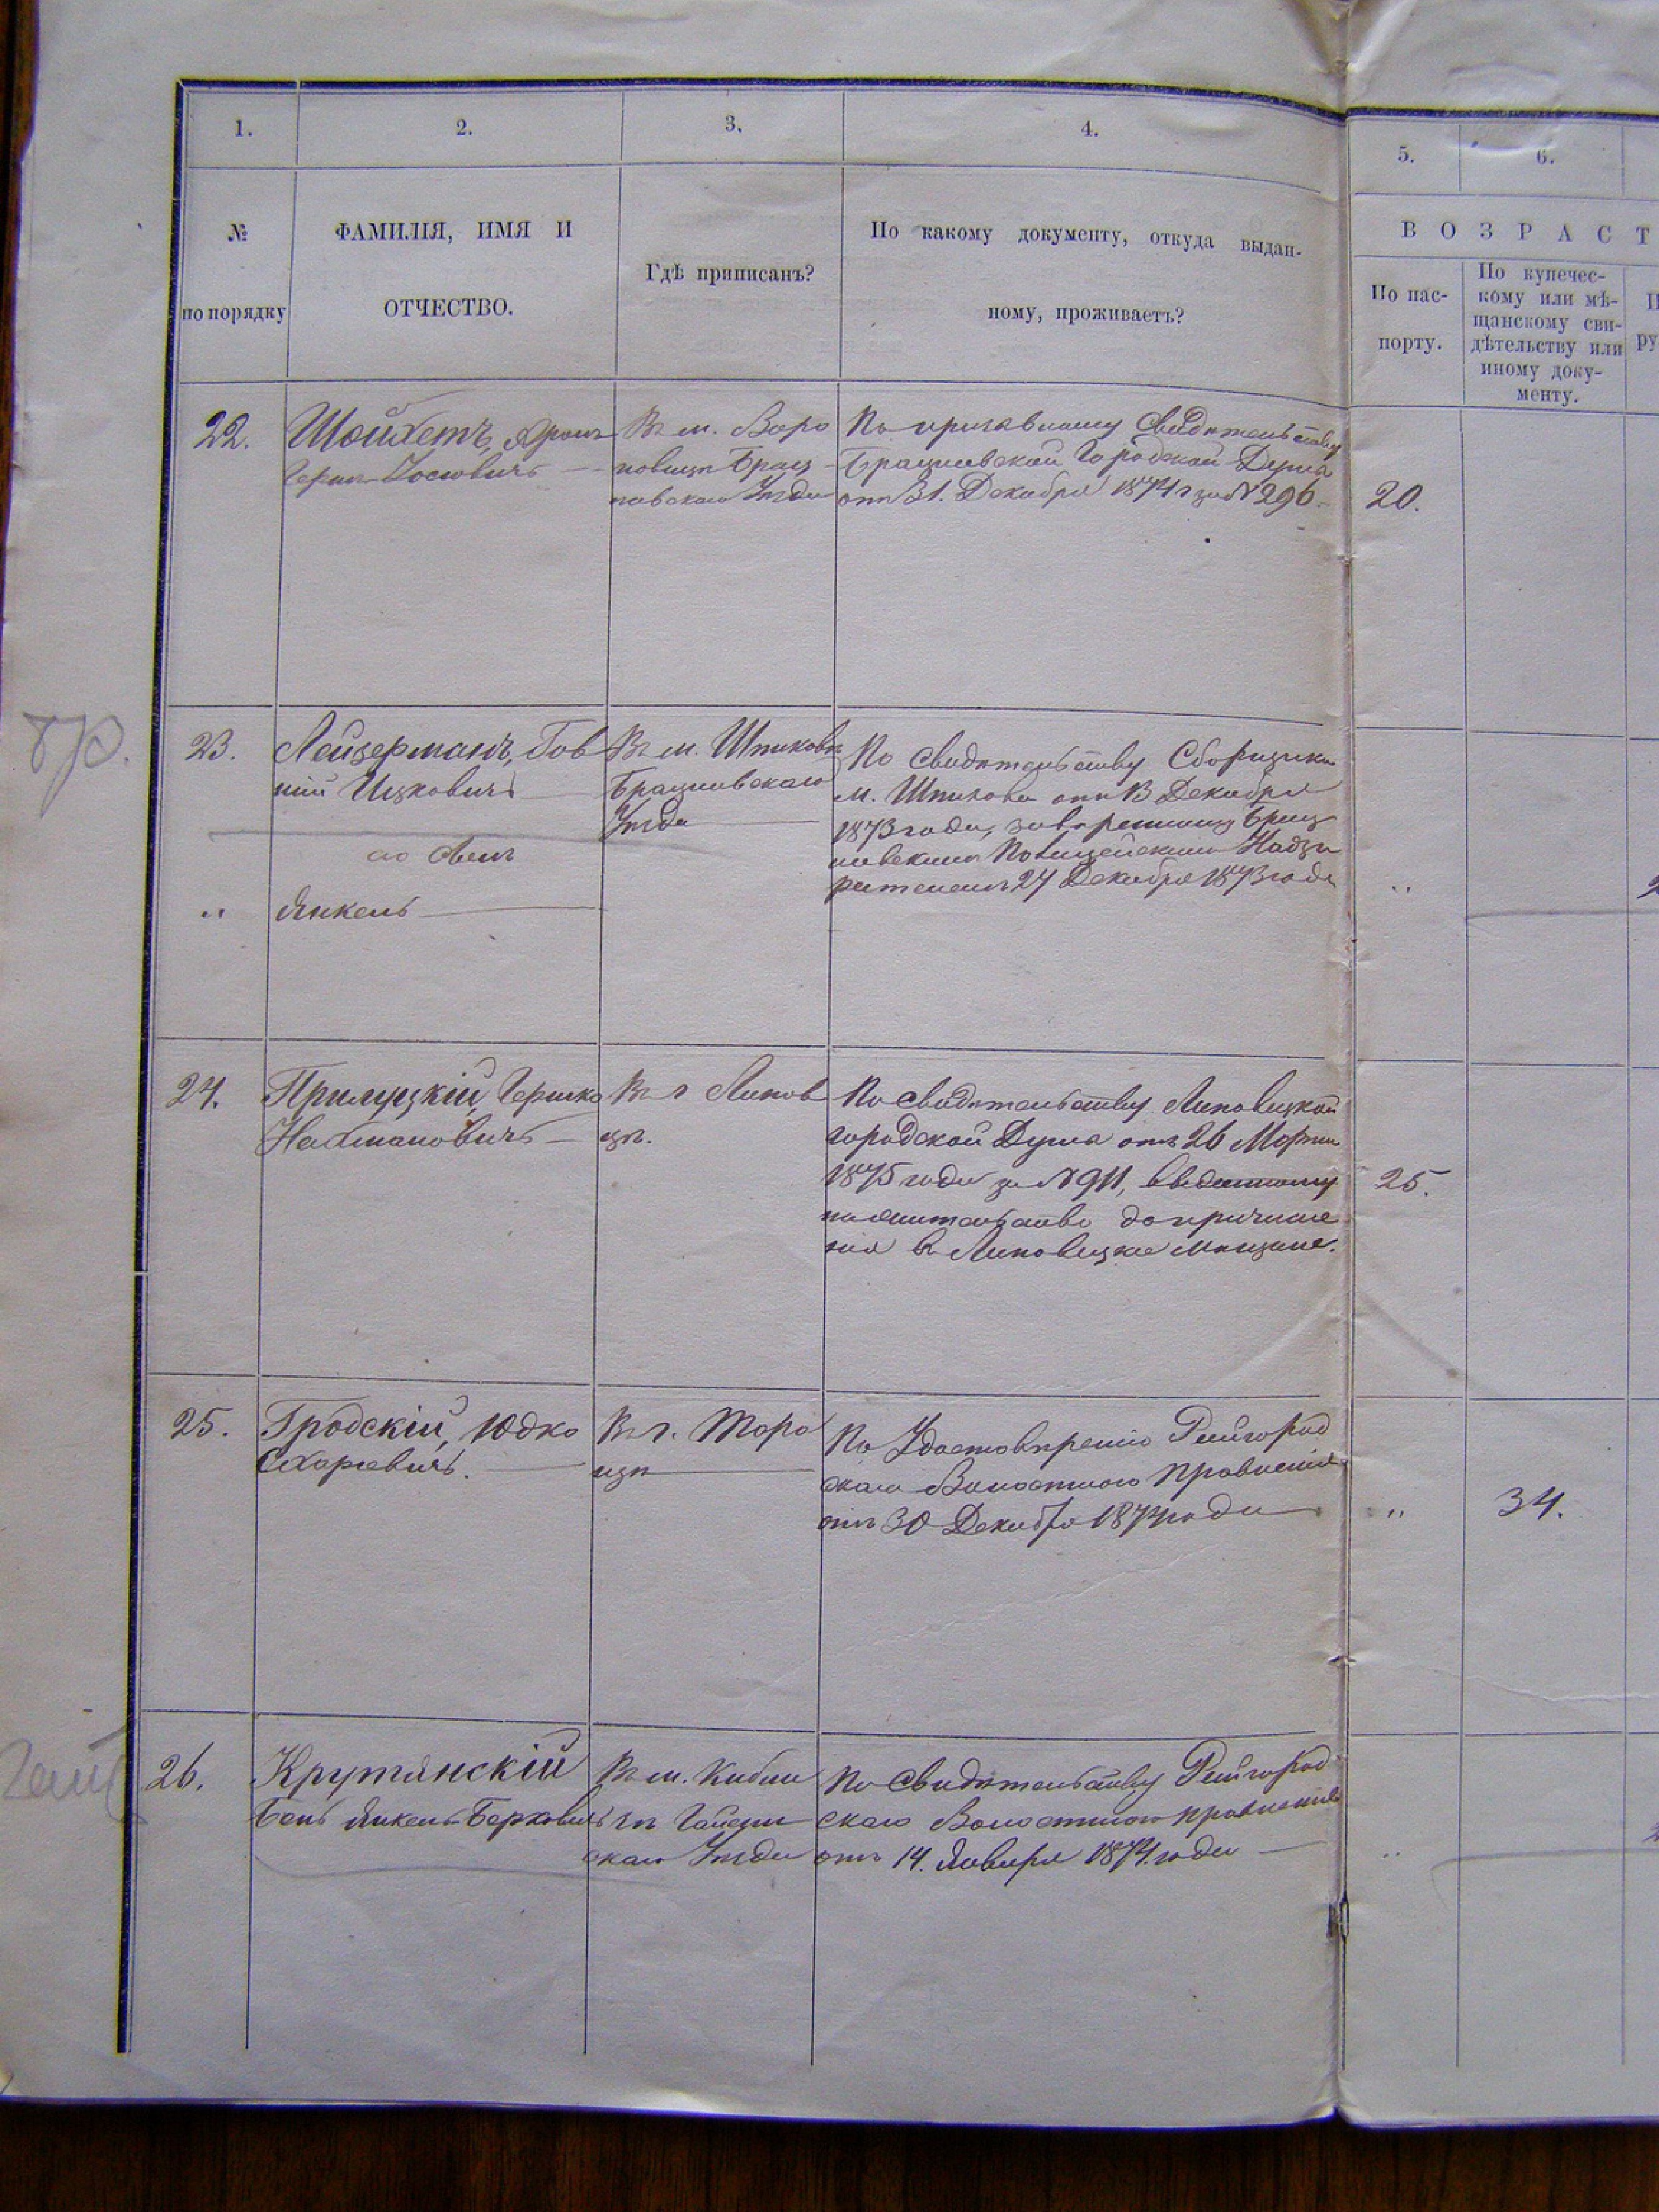 1.
2.
3.
4.
5.
6.
№
по порядку
ФАМИЛІЯ, ИМЯ И
ОТЧЕСТВО.
Гдѣ приписанъ?
По какому документу, откуда выдан-
ному, проживаетъ?
ВОЗРАСТ
По пас-
порту.
По купечес-
кому или мѣ-
щанскому сви-
дѣтельству или
иному доку-
менту.
22.
Шойхетъ, Аронъ
Герш Іосіовичъ
Въ м. Воро
новицѣ Брац
лавскаго Уѣзда
По призывному Свидѣтельству
Брацлавской Городской Думы
отъ 31. Декабря 1874 г за № 296.
20.
бр.
23.
Лейзерманъ, Гов
шій Ицковичъ
Въ м. Шпиковѣ
Брацлавскаго
Уѣзда
По Свидѣтельству Сборщика
м. Шпикова отъ 13 Декабря
1873 года, завѣренному Брац
лавскимъ Полицейскимъ Надзи
рателемъ 24 Декабря 1873 года
"
Янкель
"
24.
Прилуцкій, Гершко
Нахмановичъ
Въ г Липов
цѣ.
По свидѣтельству Липовецкой
городской Думы отъ 26 Марта
1875 года за № 911,
до причисле
нія въ Липовецкіе мѣщане.
25.
25.
Гродскій, Юдко
Схаріевичъ.
Въ г.
цѣ
По Удостовѣренію Райгород
скаго Волостного Правленія
отъ 30 Декабря 1874 года
"
34.
26.
Крутянскій
Бень Янкель Берковичъ
Въ м. Кибли
чѣ Гайсин
скаго Уѣзда
По Свидѣтельству Райгород
скаго Волостного Правленія
отъ 14. Января 1874. года
"